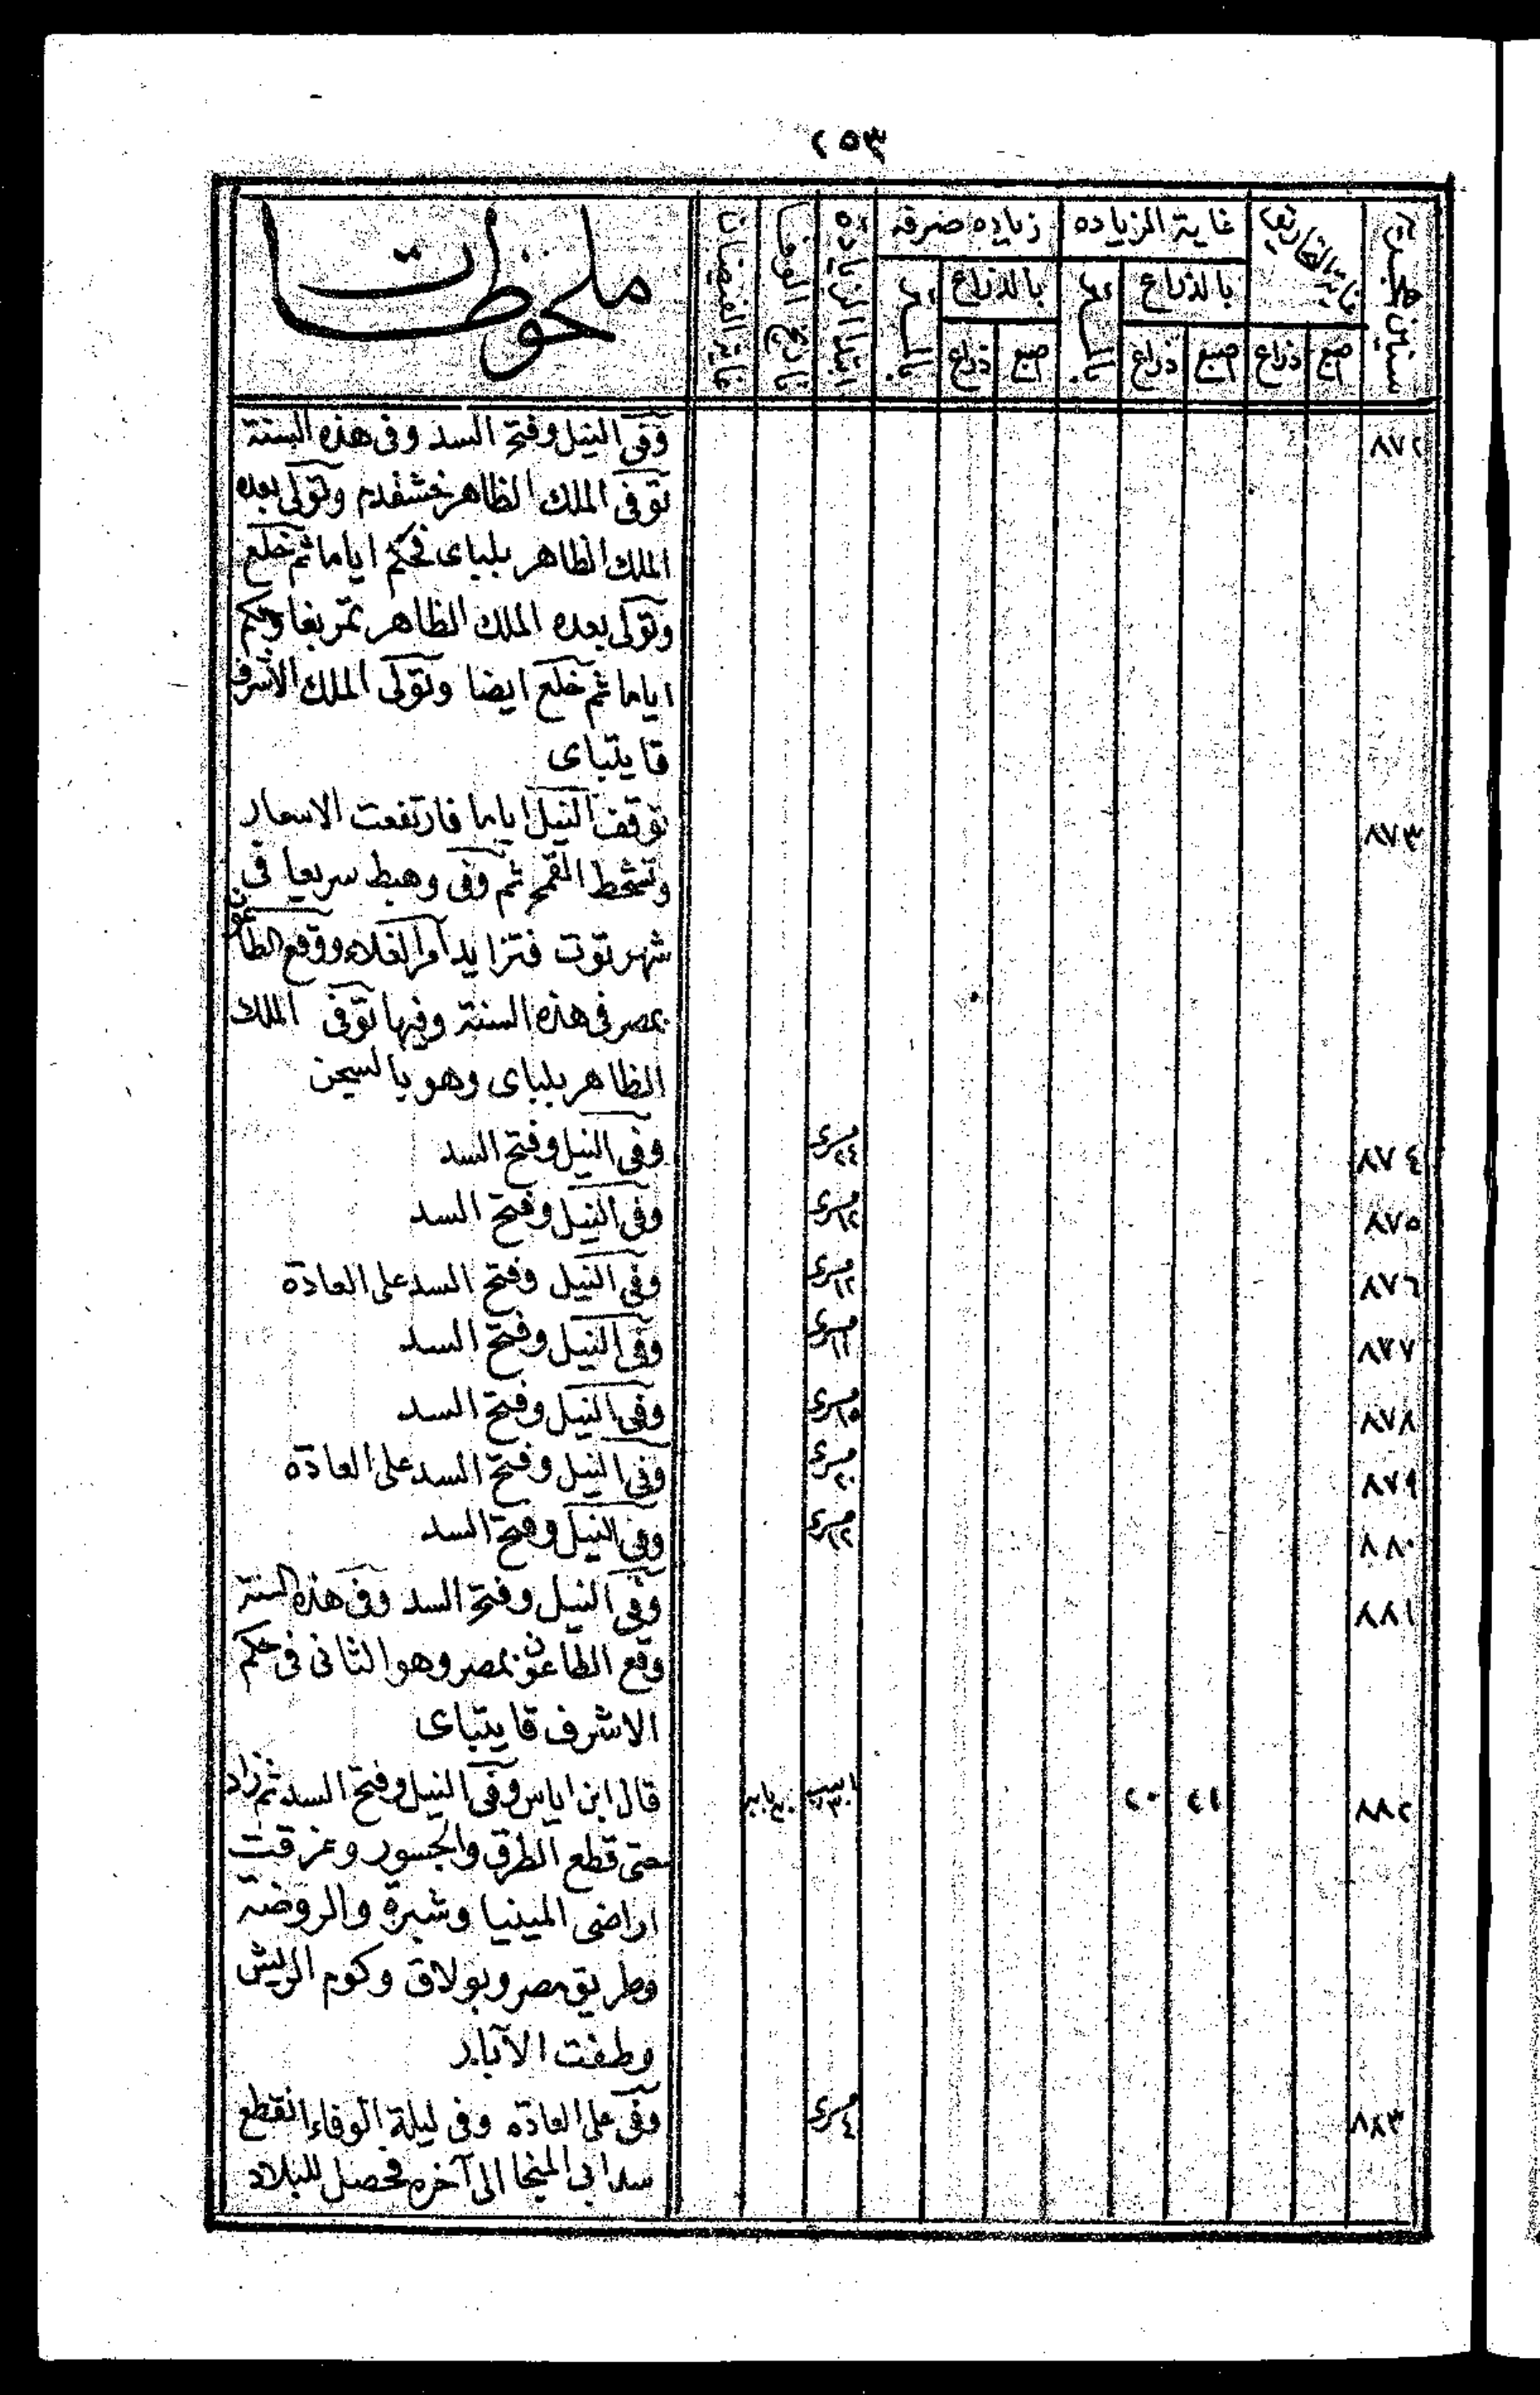 ٢٥٣
سنين هجرية
غاية التحاريق
غاية الزياده
زياده صرفه
ابتدا الزياده
تاريخ الوفا
غاية الفيضان
ملحوظات
بالذراع
بالذراع
اصبع
ذراع
اصبع
ذراع
اصبع
ذراع
٨٧٢ وفى النيل وفتح السد وفى هذه السنة
توفى الملك الظاهر خشقدم وتولى بعده
الملك الظاهر بلباى فحكم اياما ثم خلع
وتولى بعده الملك الظاهر تمربغا وحكم
اياما ثم خلع ايضا وتولى الملك الأشرف
قايتباى
٨٧٣ توقف النيل اياما فارتفعت الاسعار
وتشحط القمح ثم وفى وهبط سريعا فى
شهر توت فتزايد امر الغلاء ووقع الطاعون
بمصر فى هذه السنة وفيها توفى الملك
الظاهر بلباى وهو بالسجن
٨٧٤ مسرى ٢٤ وفى النيل وفتح السد
٨٧٥ مسرى ١٢ وفى النيل وفتح السد
٨٧٦ مسرى ١٢ وفى النيل وفتح السد على العادة
٨٧٧ مسرى ١١ وفى النيل وفتح السد
٨٧٨ مسرى ١٥ وفى النيل وفتح السد
٨٧٩ مسرى ٢٠ وفى النيل وفتح السد على العادة
٨٨٠ مسرى ١٢ وفى النيل وفتح السد
٨٨١ وفى النيل وفتح السد وفى هذه السنة
وقع الطاعون بمصر وهو الثانى فى حكم
الاشرف قايتباى
٨٨٢ ٢١ ٢٠ ابيب بابه قال ابن اياس وفى النيل وفتح السد ثم زاد
حتى قطع الطرق والجسور وغرقت
اراضى المينيا وشبرة والروضة
وطريق مصر وبولاق وكوم الريش
وطفت الآبار
٨٨٣ مسرى ٤ وفى على العادة وفى ليلة الوفاء انقطع
سد ابى المنجا الى آخره فحصل للبلاد